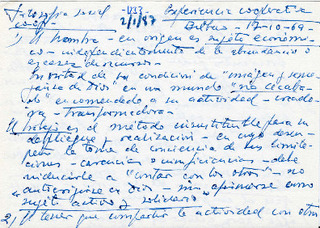 Filosofia social - 037 - Experiencia cooperativa
coop. 2/1/87 Bilbao - 12-10-69 -
1) El hombre - en origen es sujeto económi-
co - independientemente de la abundancia o
escasez de recursos -
en virtud de su condición de "imagen y seme-
janza de Dios" en un mundo "no acaba-
do" encomendado a su actividad - creado-
ra - transformadora -
El trabajo es el método insustituible para su
despliegue y realización - en cuyo desem-
peño la toma de conciencia de sus limita-
ciones - carencias o insuficiencias - debe
inducirle a "contar con los otros" - no
a como
sujeto activo y solidario
2) El tener que compartir la actividad con otros